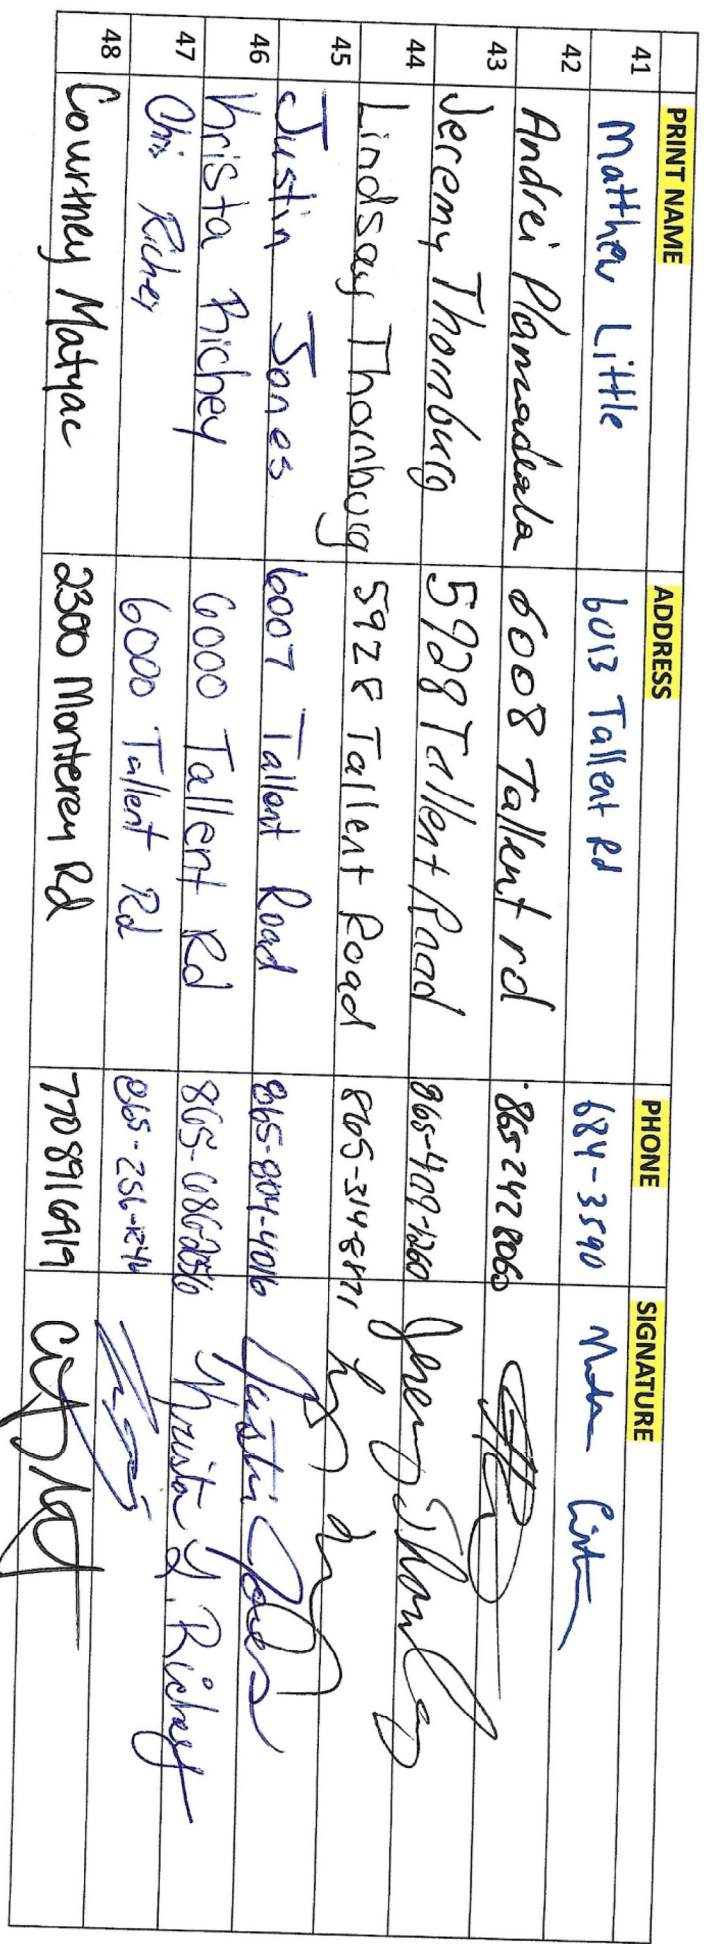 PRINT NAME ADDRESS PHONE SIGNATURE
41 Matthew Little 6013 Tallent Rd 684-3590
42 Andrei Plamadeala 6008 Tallent rd 865 242 8060
43 Jeremy Thornburg 5928 Tallent Road 865-409-1260 Jeremy Thornburg
44 Lindsay Thornburg 5928 Tallent Road
45 Justin Jones 6007 Tallent Road 865-804-4016 Justin Jones
46 Krista Richey 6000 Tallent Rd Krista Y. Richey
47 Chris Richey 6000 Tallent Rd
48 Courtney Matyac 2300 Monterey Rd